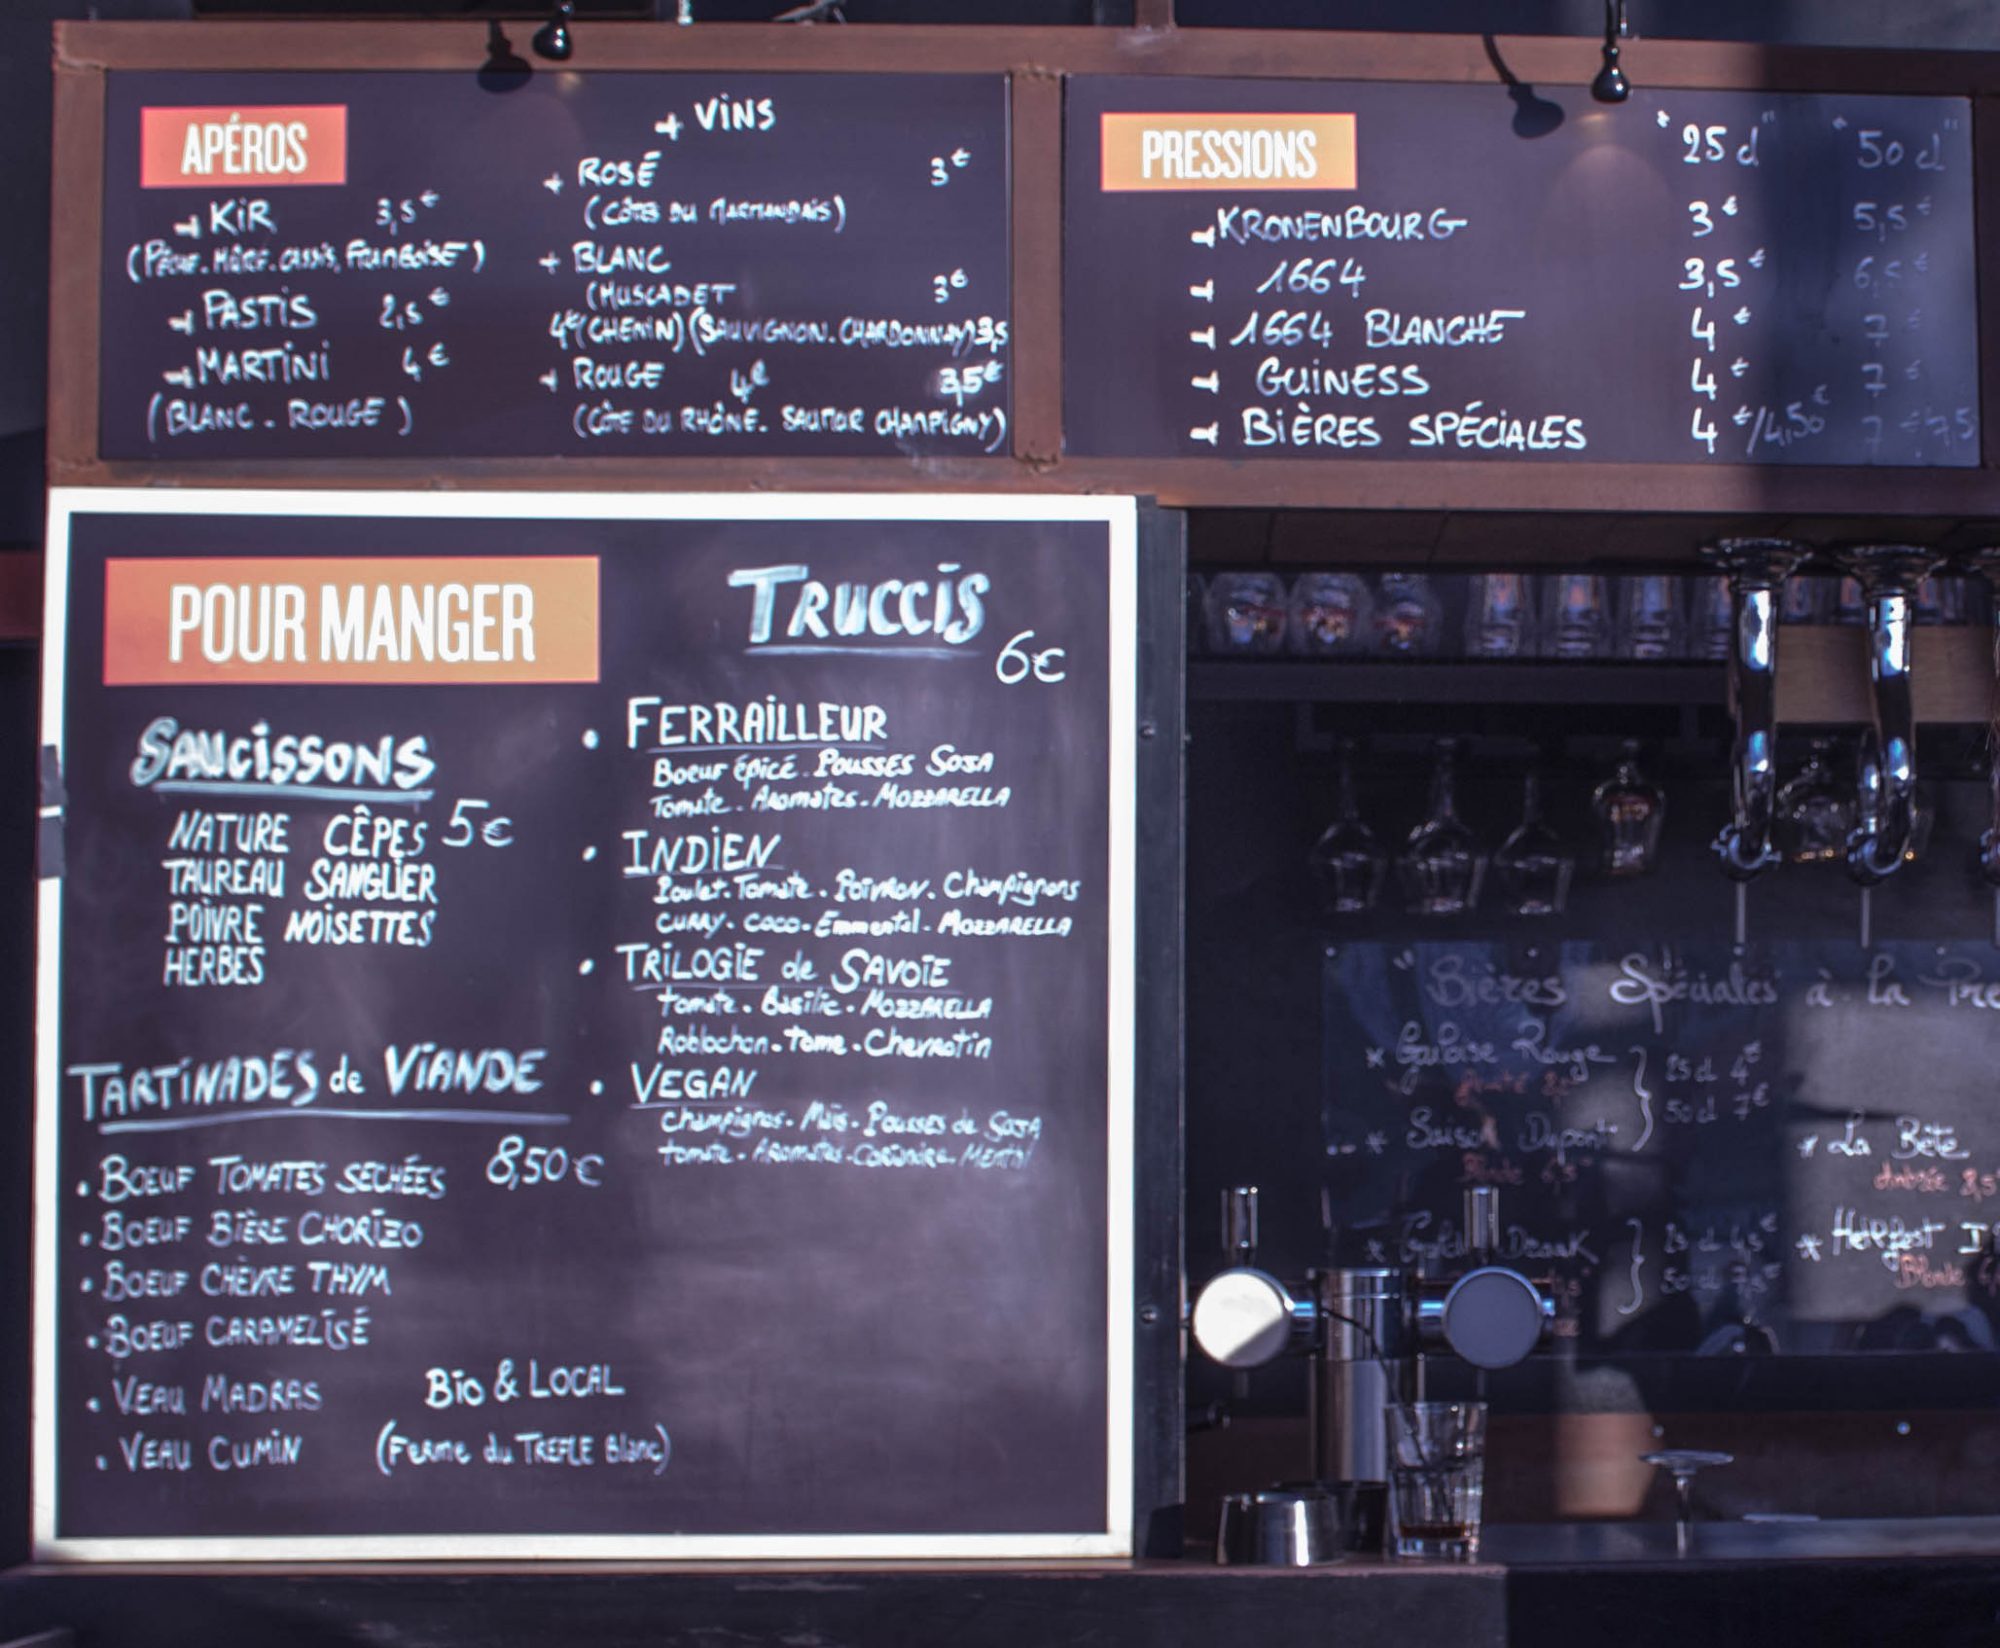 APÉROS
KiR 3,5€
(Pêche. Mûre. cassis, Framboise)
PASTiS 2,5€
MARTiNi 4€
(BLANC. ROUGE)
+ ViNS
+ ROSÉ 3€
(Côtes du Marmandais)
+ BLANC
(MUSCADET 3€
4€ (CHENIN) (SAUVIGNON. CHARDONNAY) 3,5
+ ROUGE 4€ 3,5€
(CÔTE DU RHÔNE. SAUMUR CHAMPIGNY)
PRESSIONS "25 cl" "50 cl"
KRONENBOURG 3€ 5,5€
1664 3,5€ 6,5€
1664 BLANCHE 4€ 7€
GUINESS 4€ 7€
BIÈRES SPÉCiALES 4€/4,50€ 7€/7,5
POUR MANGER
SAUCiSSONS
NATURE CÊPES 5€
TAUREAU SANGLIER
POIVRE NOISETTES
HERBES
TARTINADES de ViANDE
8,50€
. BOEUF TOMATES SECHÉES
. BOEUF BIÈRE CHORIZO
. BOEUF CHÈVRE THYM
. BOEUF CARAMELISÉ
. VEAU MADRAS
. VEAU CUMIN
Bio & LOCAL
(Ferme du TREFLE Blanc)
TRUCCiS
6€
. FERRAiLLEUR
Boeuf épicé. Pousses SOJA
Tomate. Aromates. MOZZARELLA
. INDIEN
Poulet. Tomate. Poivron. Champignons
CURRY. coco. Emmental. MOZZARELLA
. TRiLOGIE de SAVOIE
tomate. Basilic. MOZZARELLA
Roblochon. Tome. Chevrotin
. VEGAN
Champignos. Maïs. Pousses de SOJA
tomate. Aromates. Coriandre.
"Bières Spéciales à La
* Gauloise Rouge
25 cl 4€
50 cl 7€
* Saison Dupont
* La Bête
Ambrée 8,5°
25 cl 4,5€
50 cl 7,5€
* Hellfest
Blonde